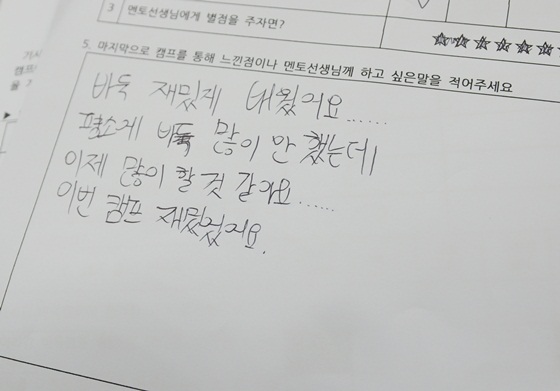 3 멘토선생님에게 별점을 주자면?
5. 마지막으로 캠프를 통해 느낀점이나 멘토선생님께 하고 싶은말을 적어주세요
바둑 재밌게 배웠어요......
평소에 바둑 많이 안 했는데
이제 많이 할 것 같아요......
이번 캠프 재밌었어요.